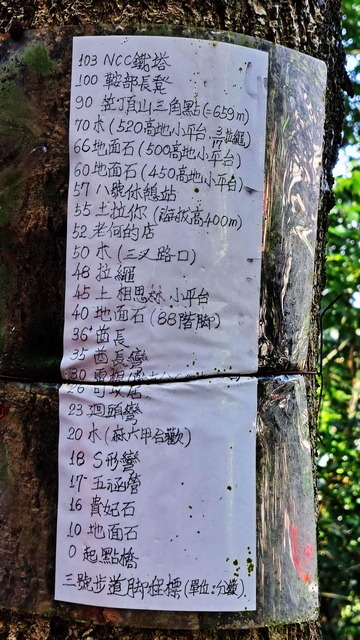 103 NCC鐵塔
100 鞍部長凳
90 笠頂山三角點(=659m)
70 木(520高地小平台 拉繩)
66 地面石(500高地小平台)
60 地面石(450高地小平台)
57 八號休憩站
55 土拉你(海拔高400m)
52 老何的店
50 木(三叉路口)
48 拉繩
45 上 相思林 小平台
40 地面石(88階腳)
36 酋長
35 酋長彎
30
26
23 迴頭彎
20 木(麻六甲台歡)
18 S形彎
17 五涵管
16 貴妃石
10 地面石
0 起點橋
三號步道腳程標(單位:分鐘)